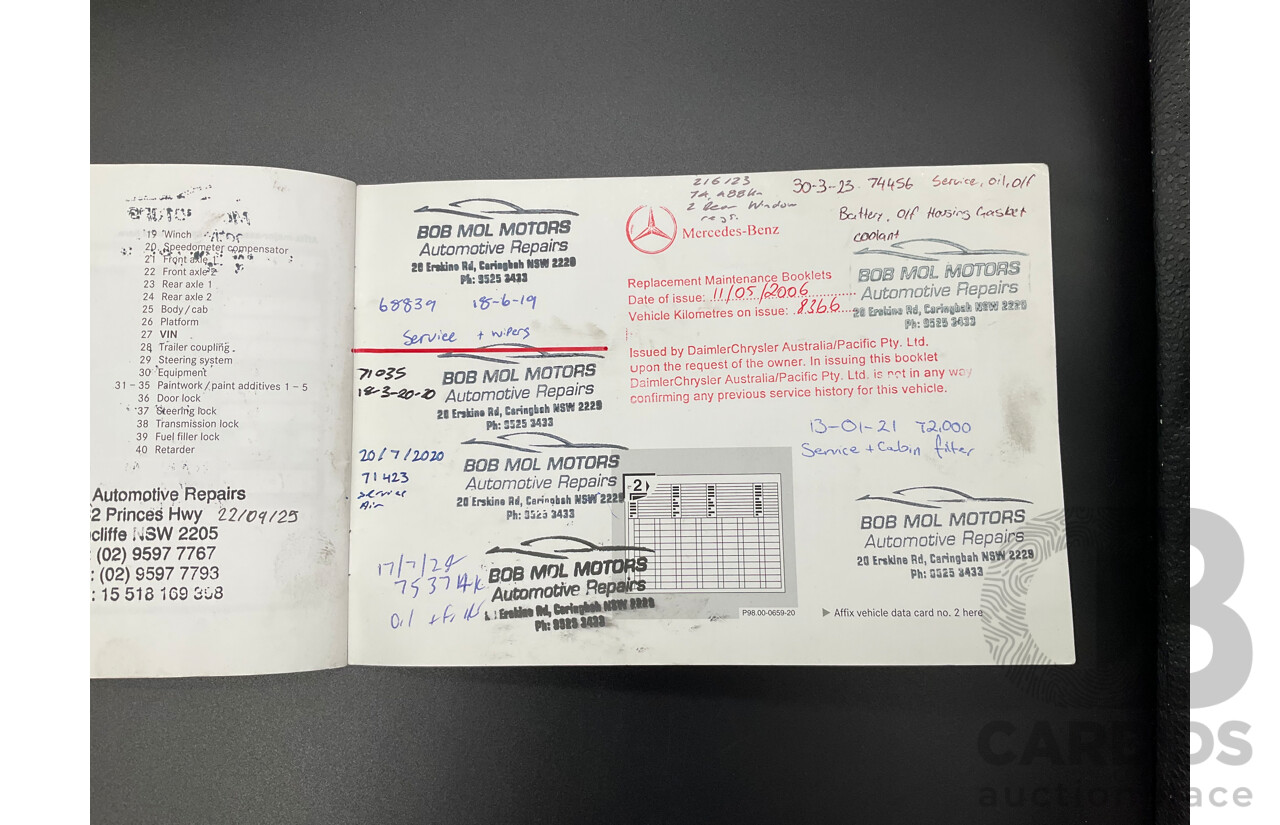 19 Winch
20 Speedometer compensator
21 Front axle 1
22 Front axle 2
23 Rear axle 1
24 Rear axle 2
25 Body/cab
26 Platform
27 VIN
28 Trailer coupling
29 Steering system
30 Equipment
31 – 35 Paintwork/paint additives 1 – 5
36 Door lock
37 Steering lock
38 Transmission lock
39 Fuel filler lock
40 Retarder
Automotive Repairs
2 Princes Hwy 22/09/25
cliffe NSW 2205
: (02) 9597 7767
: (02) 9597 7793
: 15 518 169 368
BOB MOL MOTORS
Automotive Repairs
20 Erskine Rd, Caringbah NSW 2229
Ph: 9525 3433
68839 18-6-19
Service + wipers
71035
18-3-20-20
BOB MOL MOTORS
Automotive Repairs
20 Erskine Rd, Caringbah NSW 2229
Ph: 9525 3433
20/7/2020
71423
service
Air
BOB MOL MOTORS
Automotive Repairs
20 Erskine Rd, Caringbah NSW 2229
Ph: 9525 3433
17/7/24
75374k
Oil + filt
BOB MOL MOTORS
Automotive Repairs
Erskine Rd, Caringbah NSW 2229
Ph: 9525 3433
2 Rear Window
regs.
Mercedes-Benz
30-3-23 74456 Service, oil, o/f
Battery, o/f Housing Gasket
coolant
BOB MOL MOTORS
Automotive Repairs
20 Erskine Rd, Caringbah NSW 2229
Ph: 9525 3433
Replacement Maintenance Booklets
Date of issue: 11/05/2006
Vehicle Kilometres on issue: 8366
Issued by DaimlerChrysler Australia/Pacific Pty. Ltd.
Upon the request of the owner. In issuing this booklet
DaimlerChrysler Australia/Pacific Pty. Ltd. is not in any way
confirming any previous service history for this vehicle.
13-01-21 72,000
Service + Cabin filter
BOB MOL MOTORS
Automotive Repairs
20 Erskine Rd, Caringbah NSW 2229
Ph: 9525 3433
2
P98.00-0659-20
Affix vehicle data card no. 2 here